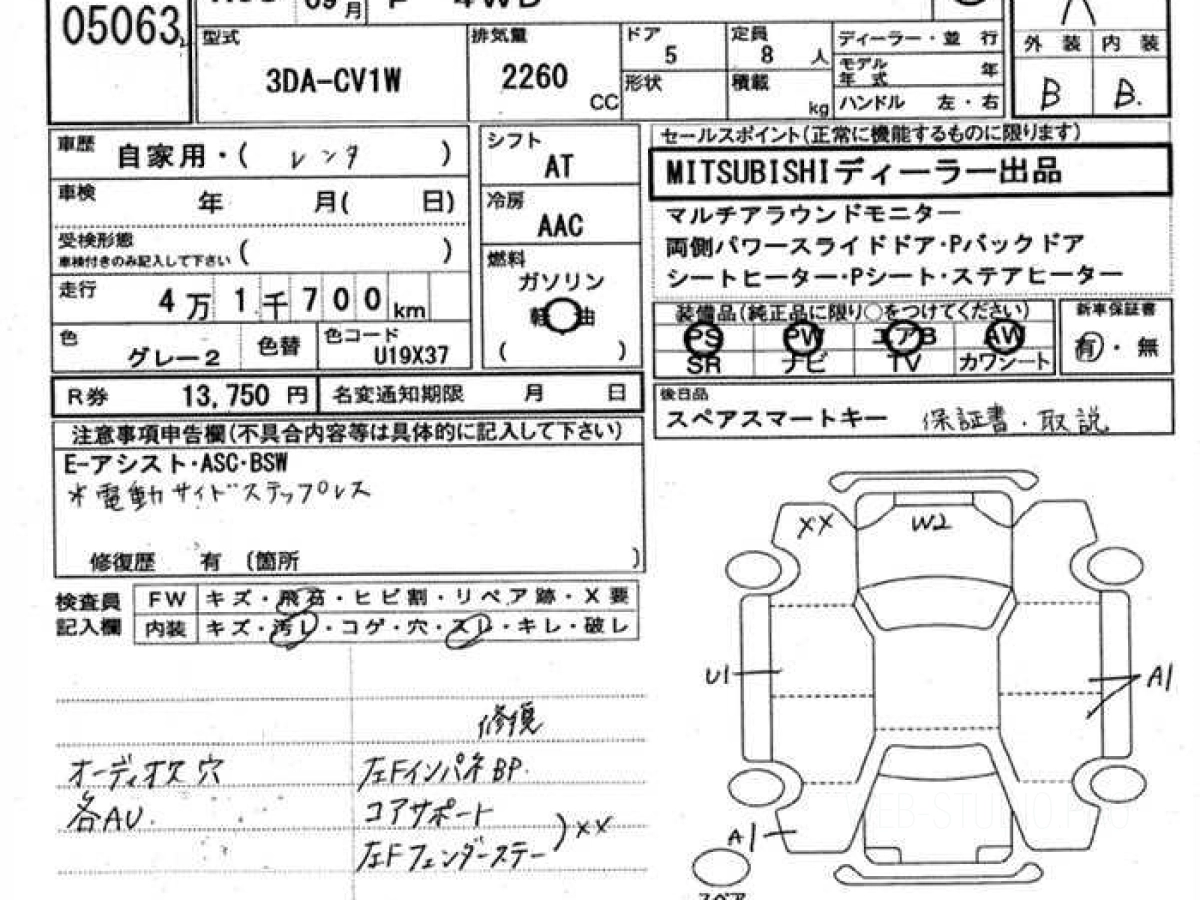 05063
09月 P 4WD
型式 3DA-CV1W
排気量 2260 CC
ドア 5
定員 8 人
形状
積載 kg
ディーラー・並 行
モデル年式 年
ハンドル 左・右
外 装 内 装
B B.
車歴 自家用・( レンタ )
車検 年 月( 日)
受検形態 ( )
車検付きのみ記入して下さい
走行 4万1千700km
色 グレー2 色替
色コード U19X37
シフト AT
冷房 AAC
燃料 ガソリン
軽油
( )
セールスポイント(正常に機能するものに限ります)
MITSUBISHIディーラー出品
マルチアラウンドモニター
両側パワースライドドア・Pバックドア
シートヒーター・Pシート・ステアヒーター
装備品(純正品に限り○をつけてください)
PS PW エアB AW
SR ナビ TV カワシート
新車保証書
有・無
R券 13,750 円 名変通知期限 月 日
後日品
スペアスマートキー 保証書・取説
注意事項申告欄(不具合内容等は具体的に記入して下さい)
E-アシスト・ASC・BSW
※電動サイドステップレス
修復歴 有 (箇所 )
検査員記入欄
FW キズ・飛石・ヒビ割・リペア跡・X要
内装 キズ・汚レ・コゲ・穴・スレ・キレ・破レ
修復
オーディオス穴 左FインパネBP.
各AU. コアサポート
左Fフェンダーステー )××
×× W2
U1 A1
A1
スペア
WEB-STUDIO.PRO